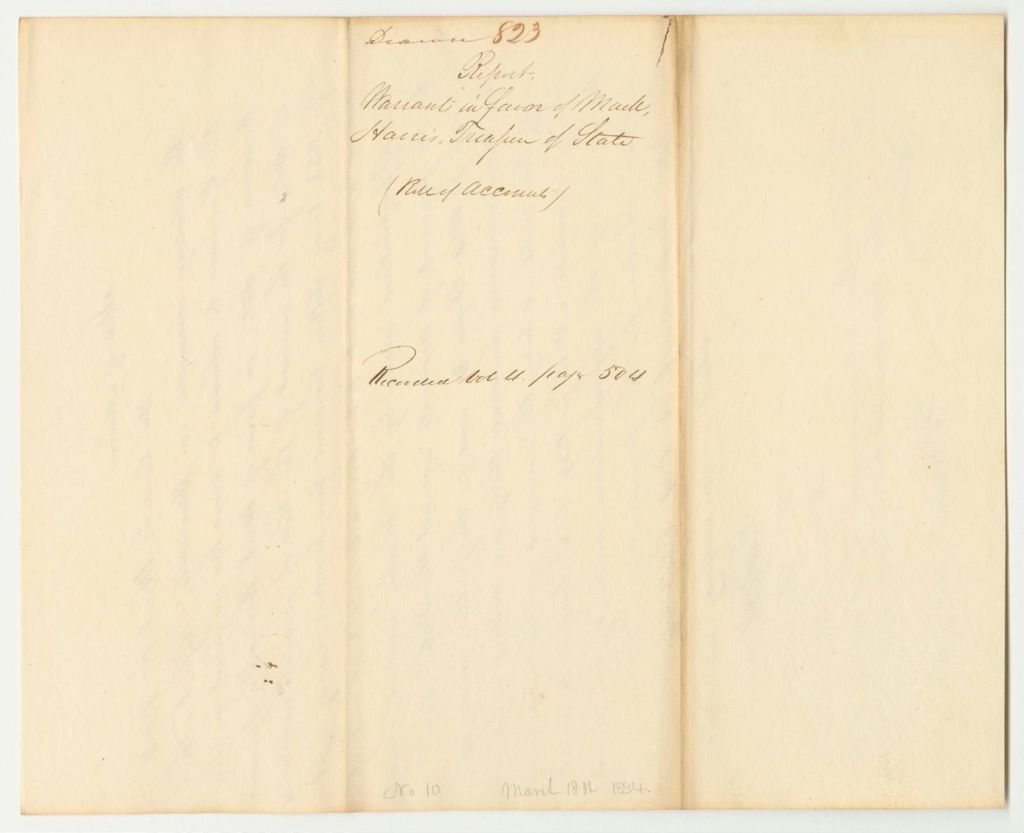 Drawn 823
Report.
Warrant in favor of Mark
Harris, Treasurer of State
(Roll of Accounts)
Recorded Vol 4. page 504
No 10 March 18th 1834.